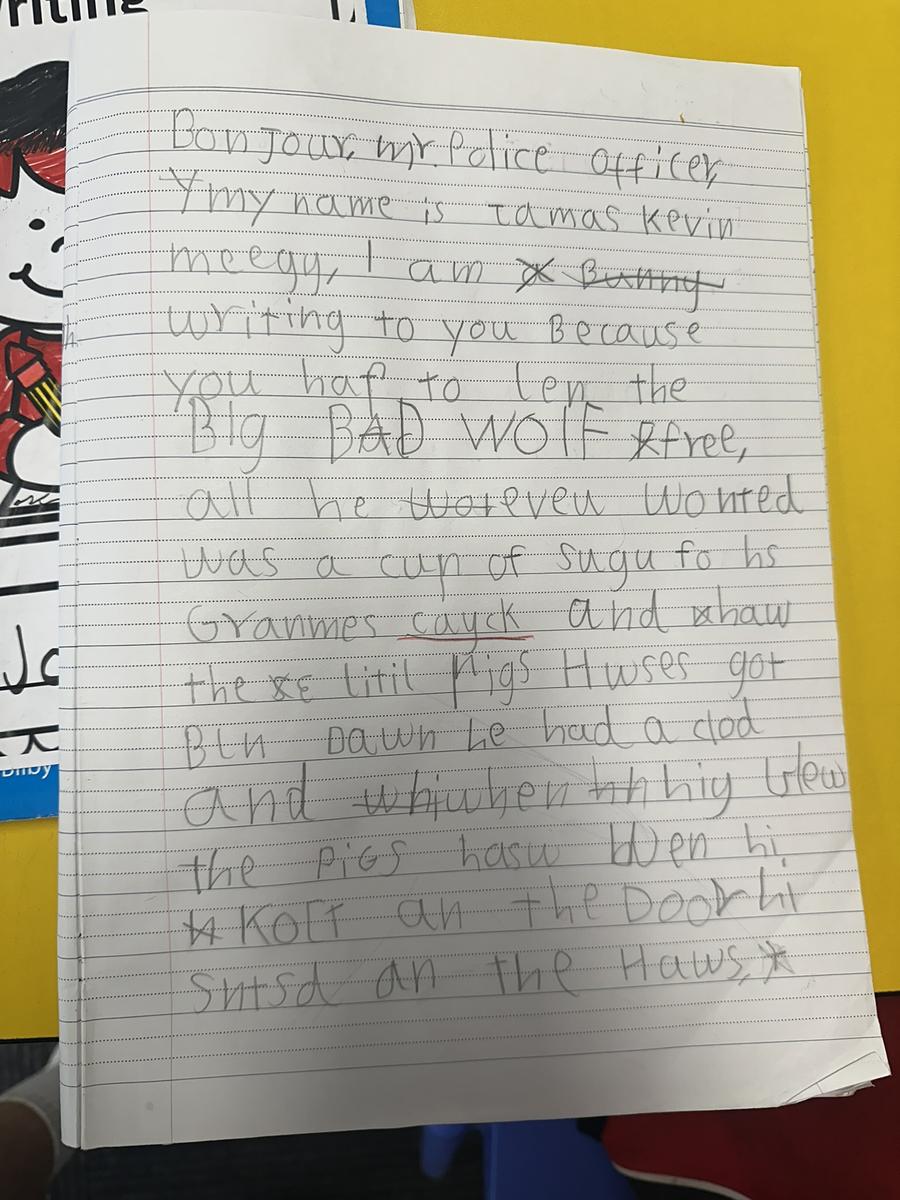 riting
Bonjour, mr. Police officer,
Y my name is Tamas Kevin
meegy, I am Bunny
writing to you Because
you haf to len the
BIg BAD WOlF free,
all he woreveu wonted
was a cup of sugu fo hs
Granmes cayck and haw
the litil pigs Hwses got
Bln Dawn he had a clod
and whiwhen hh hiy blew
the PiGS hasw wen hi
Koft an the Door hi
Sntsd an the Haws,